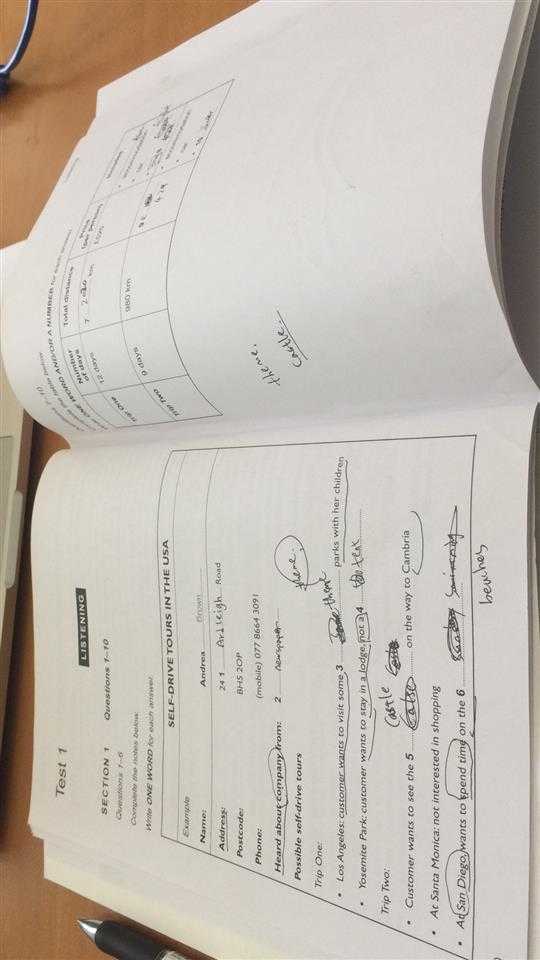 Test 1
LISTENING
SECTION 1 Questions 1–10
Questions 1–6
Complete the notes below.
Write ONE WORD for each answer.
SELF-DRIVE TOURS IN THE USA
Example
Name: Andrea Brown
Address: 24 1 Ardleigh Road
Postcode: BH5 2OP
Phone: (mobile) 077 8664 3091
Heard about company from: 2 newspaper
Possible self-drive tours
theme.
Trip One:
• Los Angeles: customer wants to visit some 3 theme parks with her children
• Yosemite Park: customer wants to stay in a lodge, not a 4 tent
Trip Two:
Castle
• Customer wants to see the 5 on the way to Cambria
• At Santa Monica: not interested in shopping
• At San Diego, wants to spend time on the 6
beaches
Complete the table below.
Write ONE WORD AND/OR A NUMBER for each answer.
Number of days
Total distance
Price (per person)
Trip One
12 days
7 km
Trip Two
9 days
980 km
429
car
theme.
castle